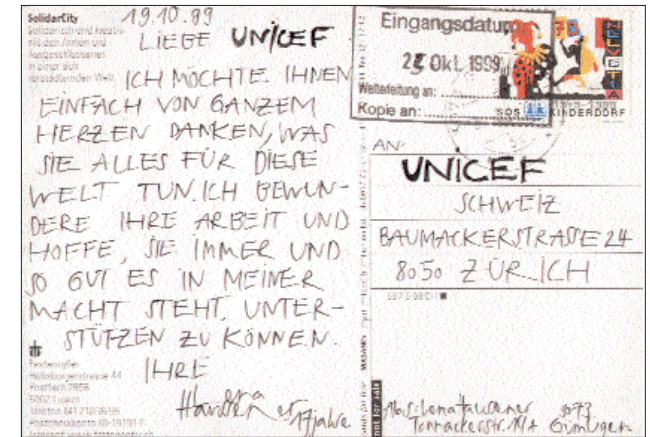 SolidarCity
Solidarisch und kreativ
mit den Armen und
Ausgeschlossenen
in einer sich
verstädternden Welt.
19.10.99
LIEBE UNICEF
ICH MÖCHTE IHNEN
EINFACH VON GANZEM
HERZEN DANKEN, WAS
SIE ALLES FÜR DIESE
WELT TUN. ICH BEWUN-
DERE IHRE ARBEIT UND
HOFFE, SIE IMMER UND
SO GUT ES IN MEINER
MACHT STEHT, UNTER-
STÜTZEN ZU KÖNNEN.
IHRE
17 Jahre
Fastenopfer
Habsburgerstrasse 44
Postfach 2856
6002 Luzern
Eingangsdatum
Okt. 1999
Weiterleitung an:
Kopie an:
70
HELVETIA
SOS KINDERDORF
AN:
UNICEF
SCHWEIZ
BAUMACKERSTRASSE 24
8050 ZÜRICH
not for sale
Abs:
3073
Gümligen